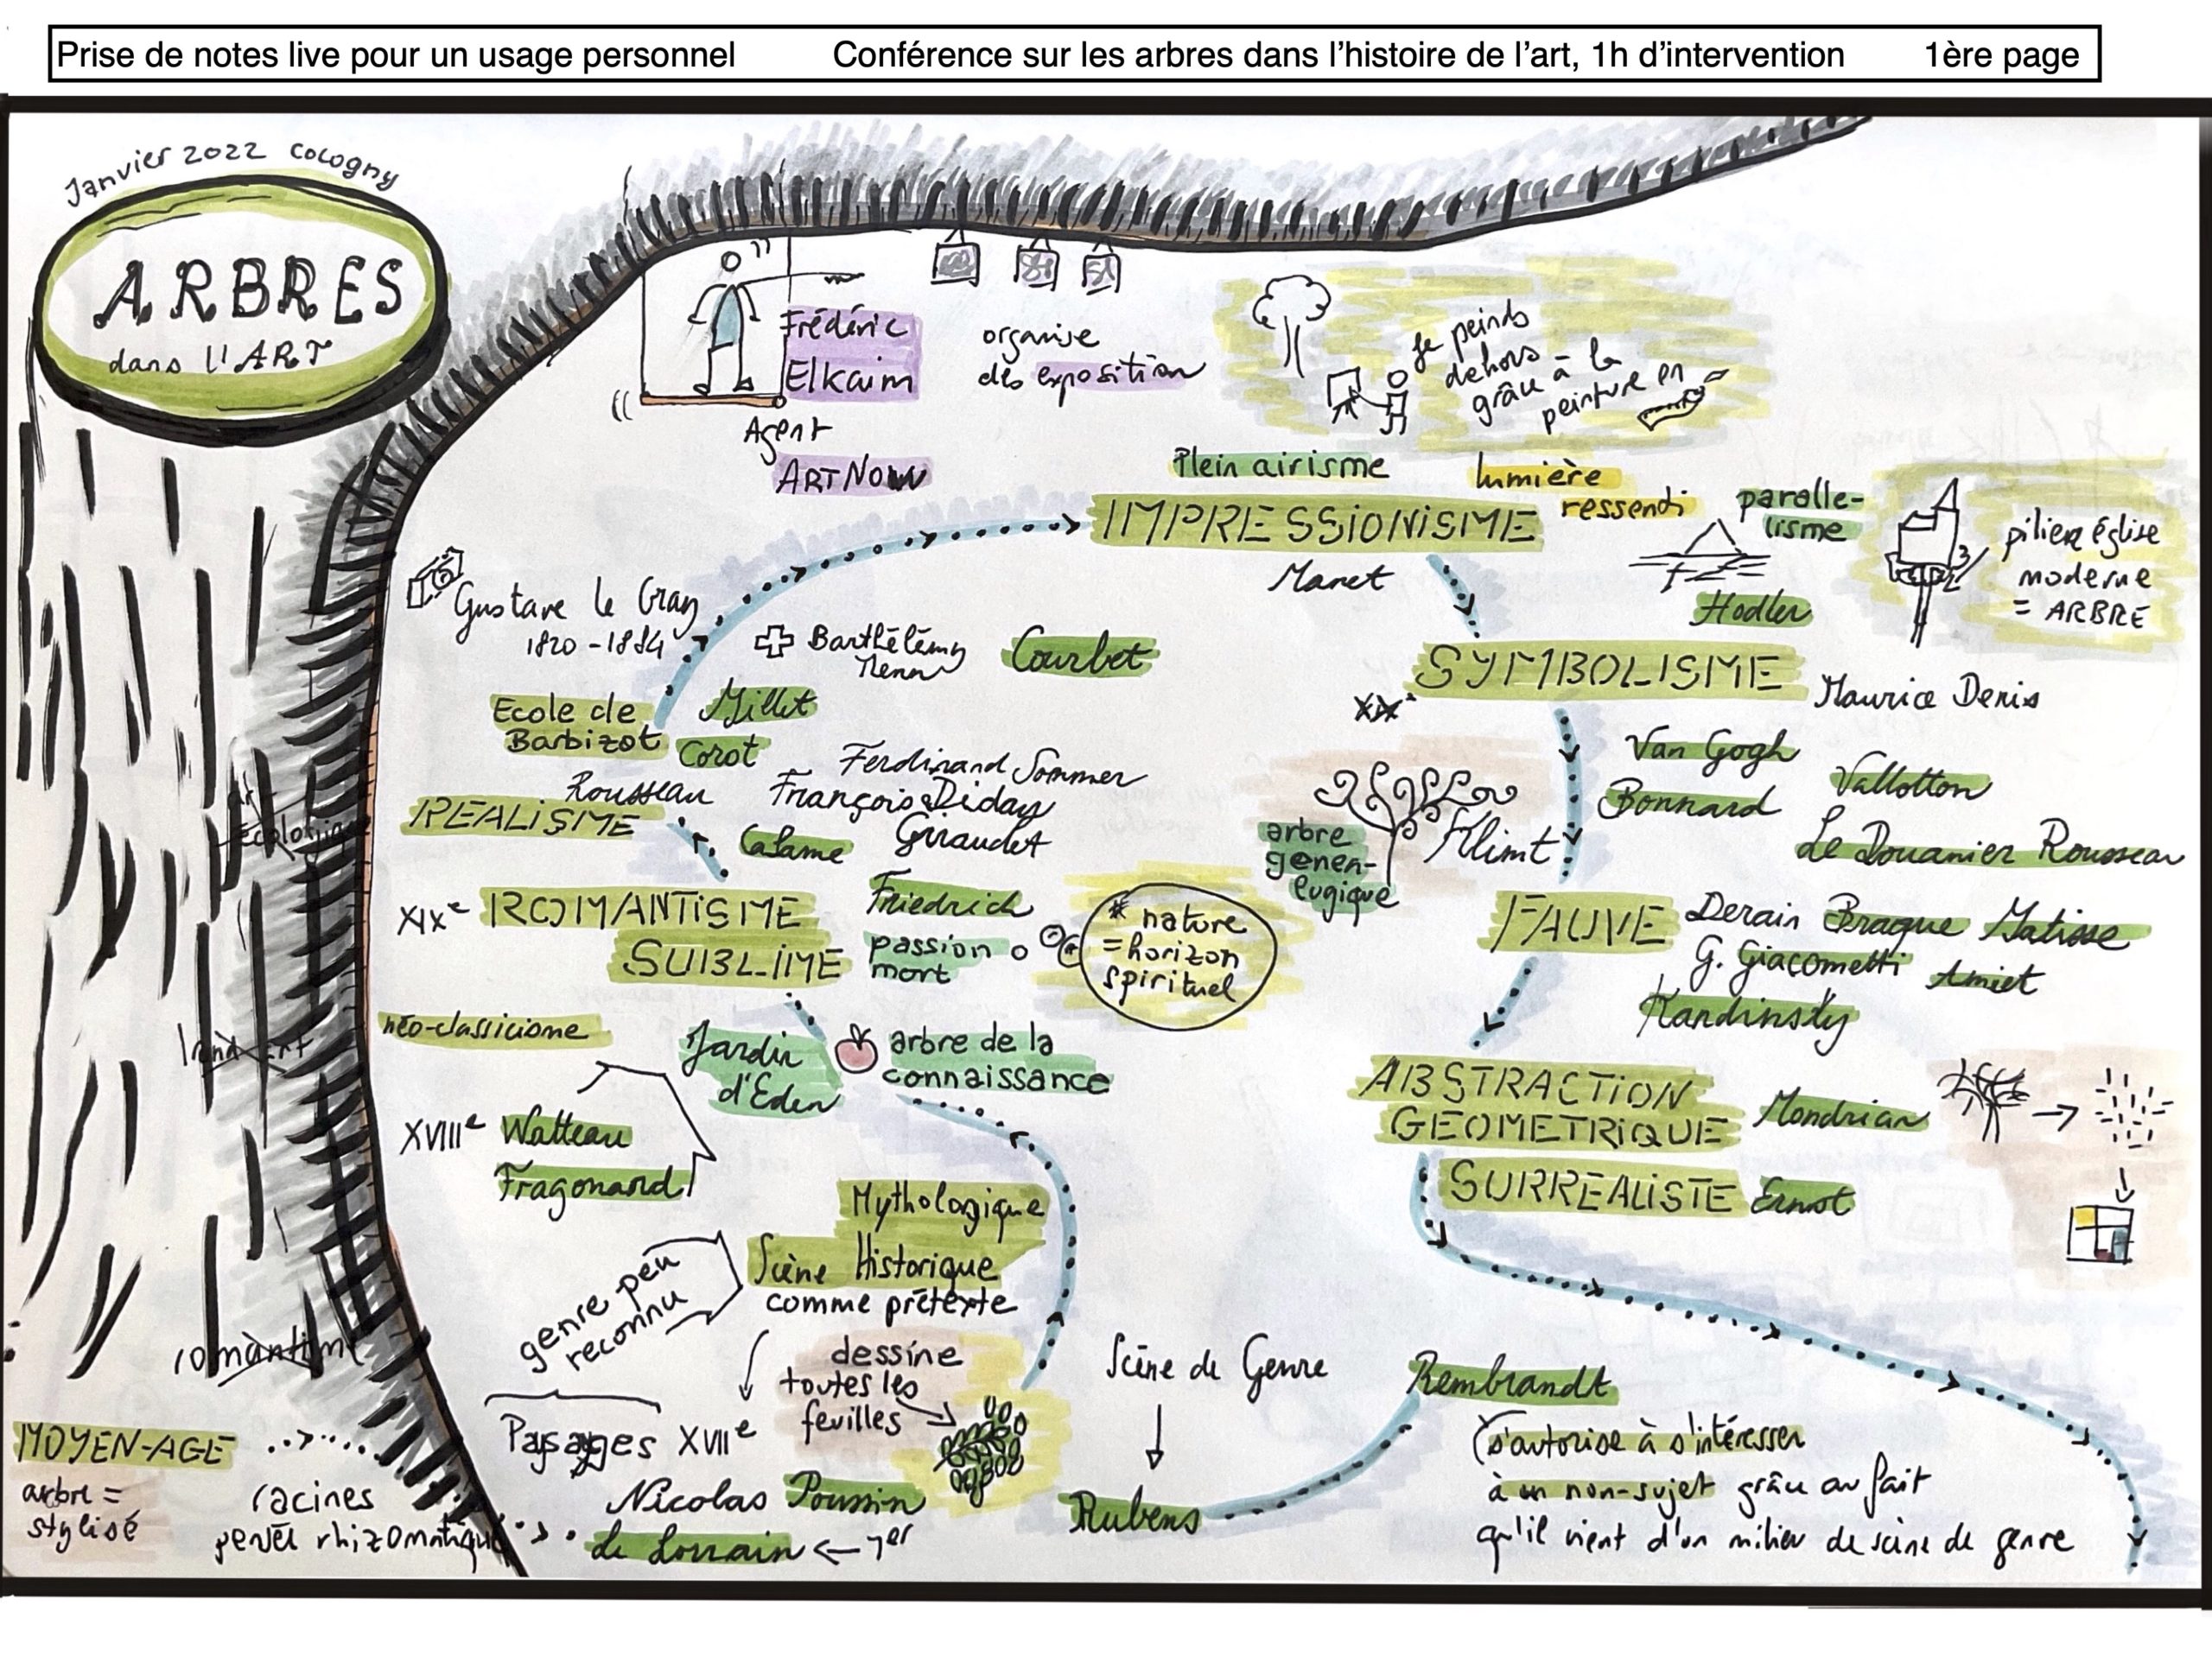 Prise de notes live pour un usage personnel
Conférence sur les arbres dans l'histoire de l'art, 1h d'intervention
1ère page
Janvier 2022 Cologny
ARBRES
dans l'ART
Frédéric
Elkaim
Agent
ARTNOW
organise
des exposition
Je peinds
dehors
grâce à la
peinture en
Plein airisme
lumière
ressenti
IMPRESSIONISME
Manet
paralle-
lisme
Hodler
pilier église
moderne
= ARBRE
Gustave le Gray
1820-1884
Barthélémy
Menn
Courbet
SYMBOLISME
Maurice Denis
XIXe
Ecole de
Barbizot
Millet
Corot
Rousseau
REALISME
Ferdinand Sommer
François Diday
Giraudet
Calame
Van Gogh
Bonnard
Vallotton
Le Douanier Rousseau
arbre
genea-
logique
Klimt
XIXe ROMANTISME
SUBLIME
Friedrich
passion
mort
* nature
= horizon
spirituel
FAUVE
Derain Braque Matisse
G. Giacometti Amiet
Kandinsky
néo-classicisme
Jardin
d'Eden
arbre de la
connaissance
XVIIIe Watteau
Fragonard
ABSTRACTION
GEOMETRIQUE
Mondrian
SURREALISTE Ernst
Mythologique
Scène Historique
comme prétexte
genre peu
reconnu
dessine
toutes les
feuilles
Paysages XVIIe
Nicolas Poussin
Le Lorrain ← 1er
Scène de Genre
Rubens
Rembrandt
s'autorise à s'intéresser
à un non-sujet grâce au fait
qu'il vient d'un milieu de scène de genre
land art
romantime
MOYEN-AGE
arbre =
stylisé
racines
rhizomatique